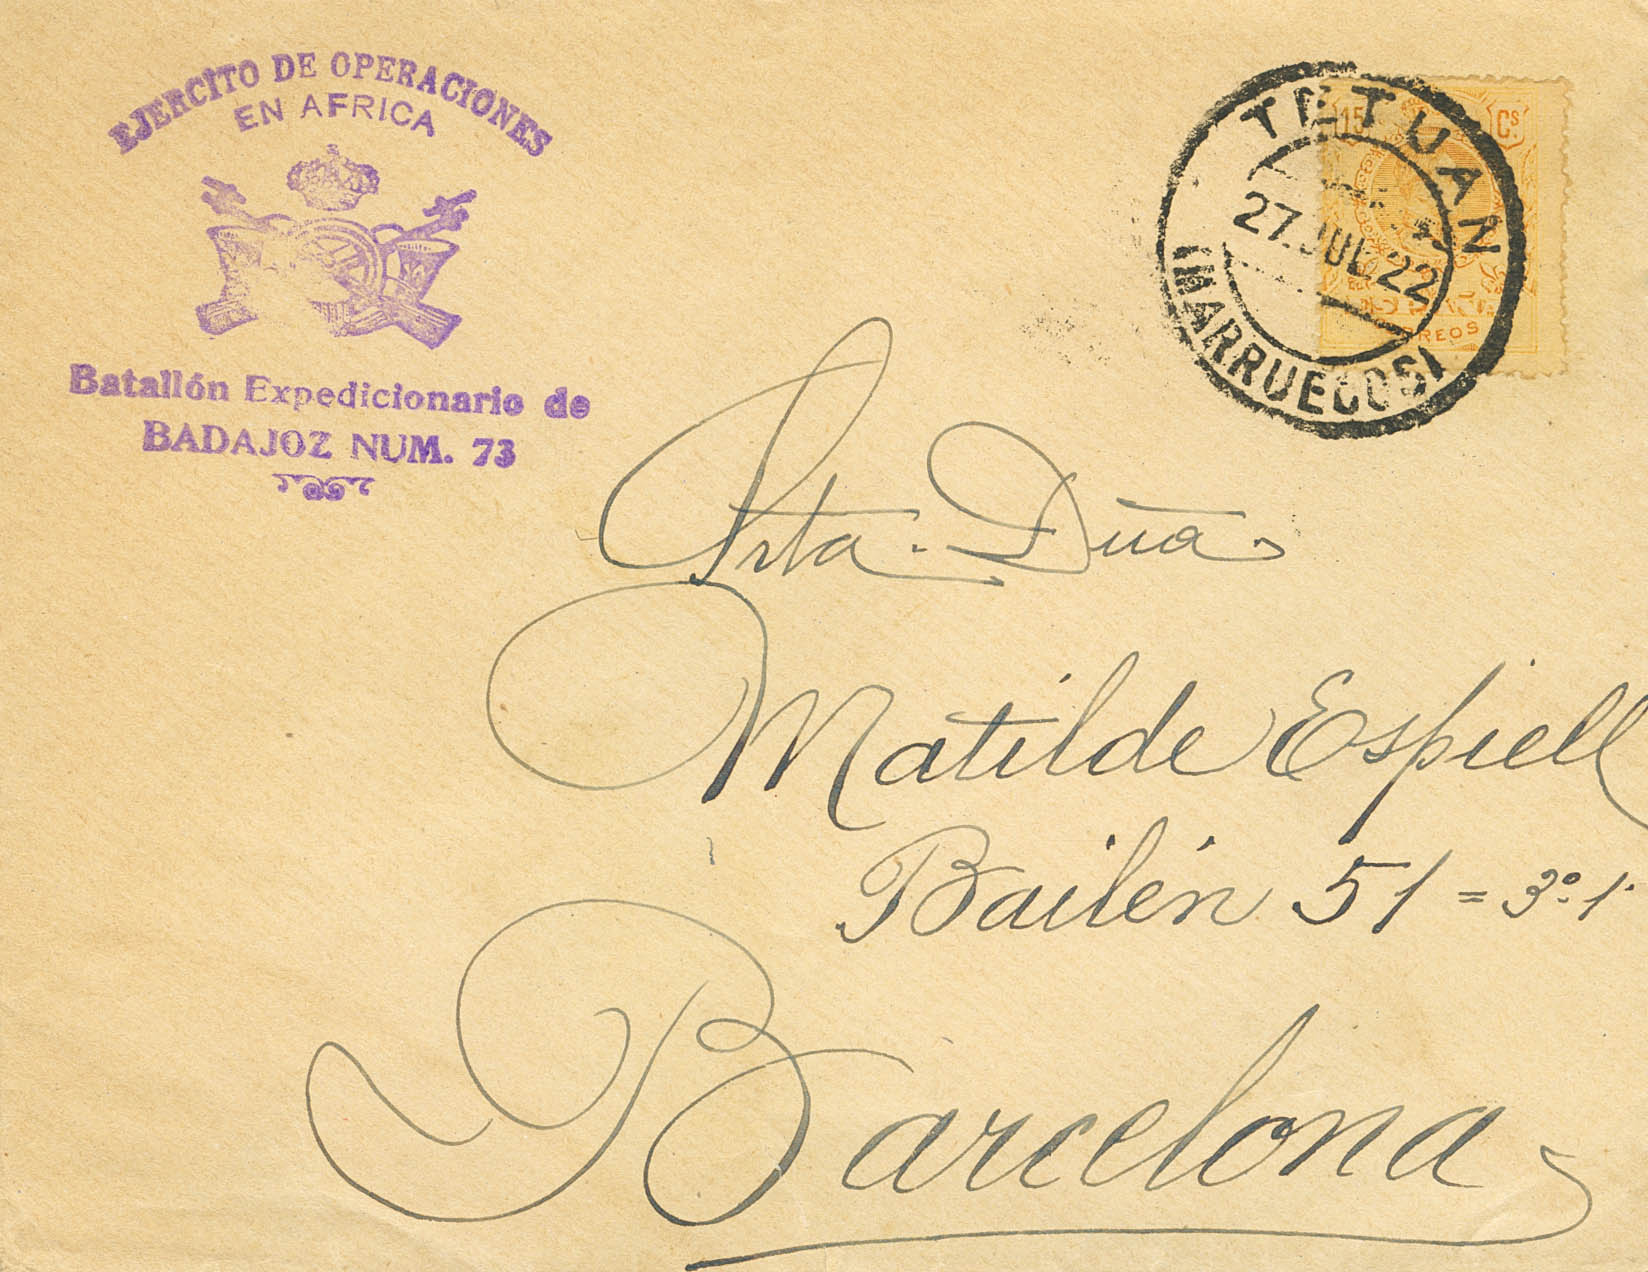 EJERCITO DE OPERACIONES
EN AFRICA
Batallón Expedicionario de
BADAJOZ NUM. 73
15 Cs
CORREOS
TETUAN
27.JUL.22
(MARRUECOS)
Srta. Dña.
Matilde Espiell
Bailén 51 = 3º 1ª
Barcelona